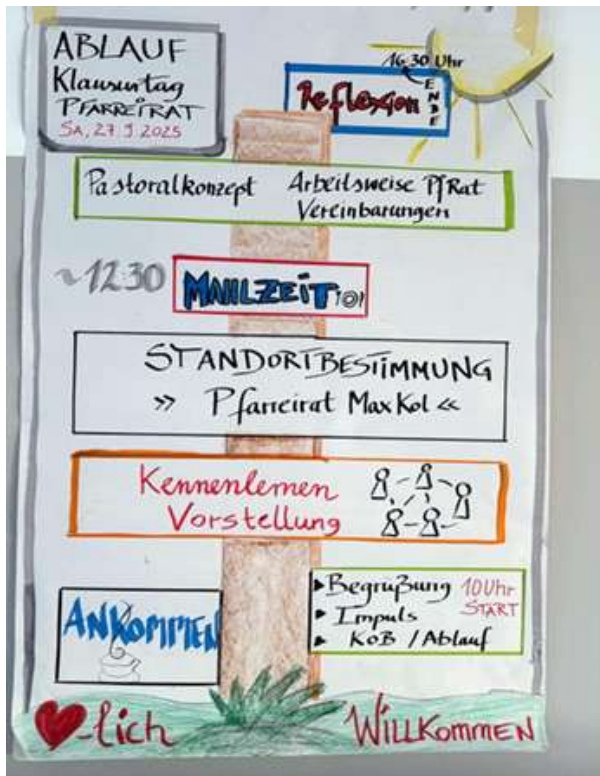 ABLAUF
Klausurtag
PFARREIRAT
SA, 27.9.2025
16:30 Uhr
ENDE
Reflexion
Pastoralkonzept
Arbeitsweise PfRat
Vereinbarungen
~12:30
MAHLZEIT
STANDORTBESTIMMUNG
» Pfarreirat MaxKol «
Kennenlernen
Vorstellung
ANKOMMEN
Begrüßung
Impuls
KoB / Ablauf
10 Uhr
START
-lich
WILLKOMMEN